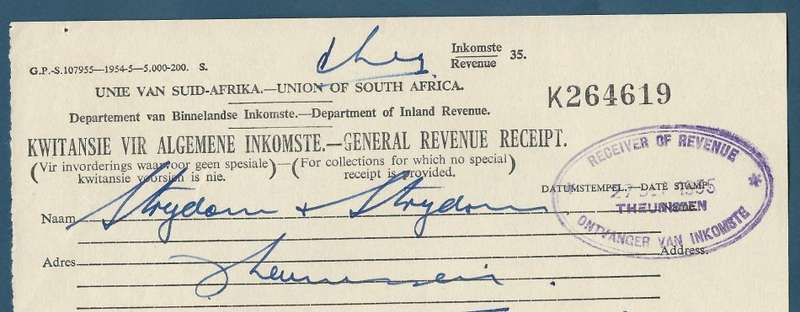 Inkomste
Revenue 35.
G.P.-S.107955—1954-5—5,000-200. S.
UNIE VAN SUID-AFRIKA.—UNION OF SOUTH AFRICA.
K264619
Departement van Binnelandse Inkomste.—Department of Inland Revenue.
KWITANSIE VIR ALGEMENE INKOMSTE.—GENERAL REVENUE RECEIPT.
(Vir invorderings waarvoor geen spesiale kwitansie voorsien is nie.)—(For collections for which no special receipt is provided.)
RECEIVER OF REVENUE
DATUMSTEMPEL.—DATE STAMP.
1955
THEUNISSEN
ONTVANGER VAN INKOMSTE
Naam Strydom & Strydom Name.
Adres Theunissen Address.